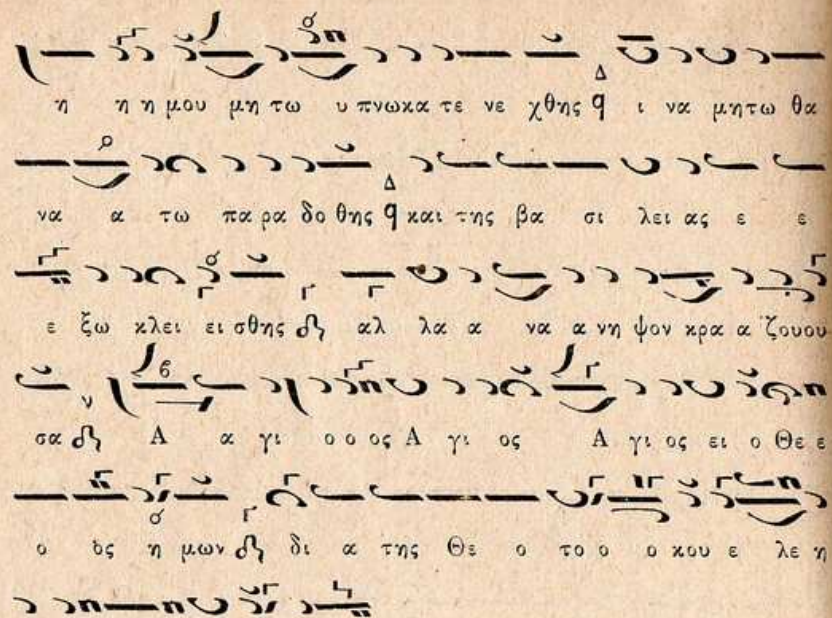 η η η μου μη τω υ πνωκα τε νε χθης Δ ι να μητω θα
να α τω πα ρα δο θης Δ και της βα σι λει ας ε ε
ε ξω κλει ει σθης Γ αλ λα α να α νη ψον κρα α ζουου
σα ν Α α γι ο ο ος Α γι ος Α γι ος ει ο Θε ε
ο ὸς η μων Γ δι α της Θε ο το ο ο κου ε λε η